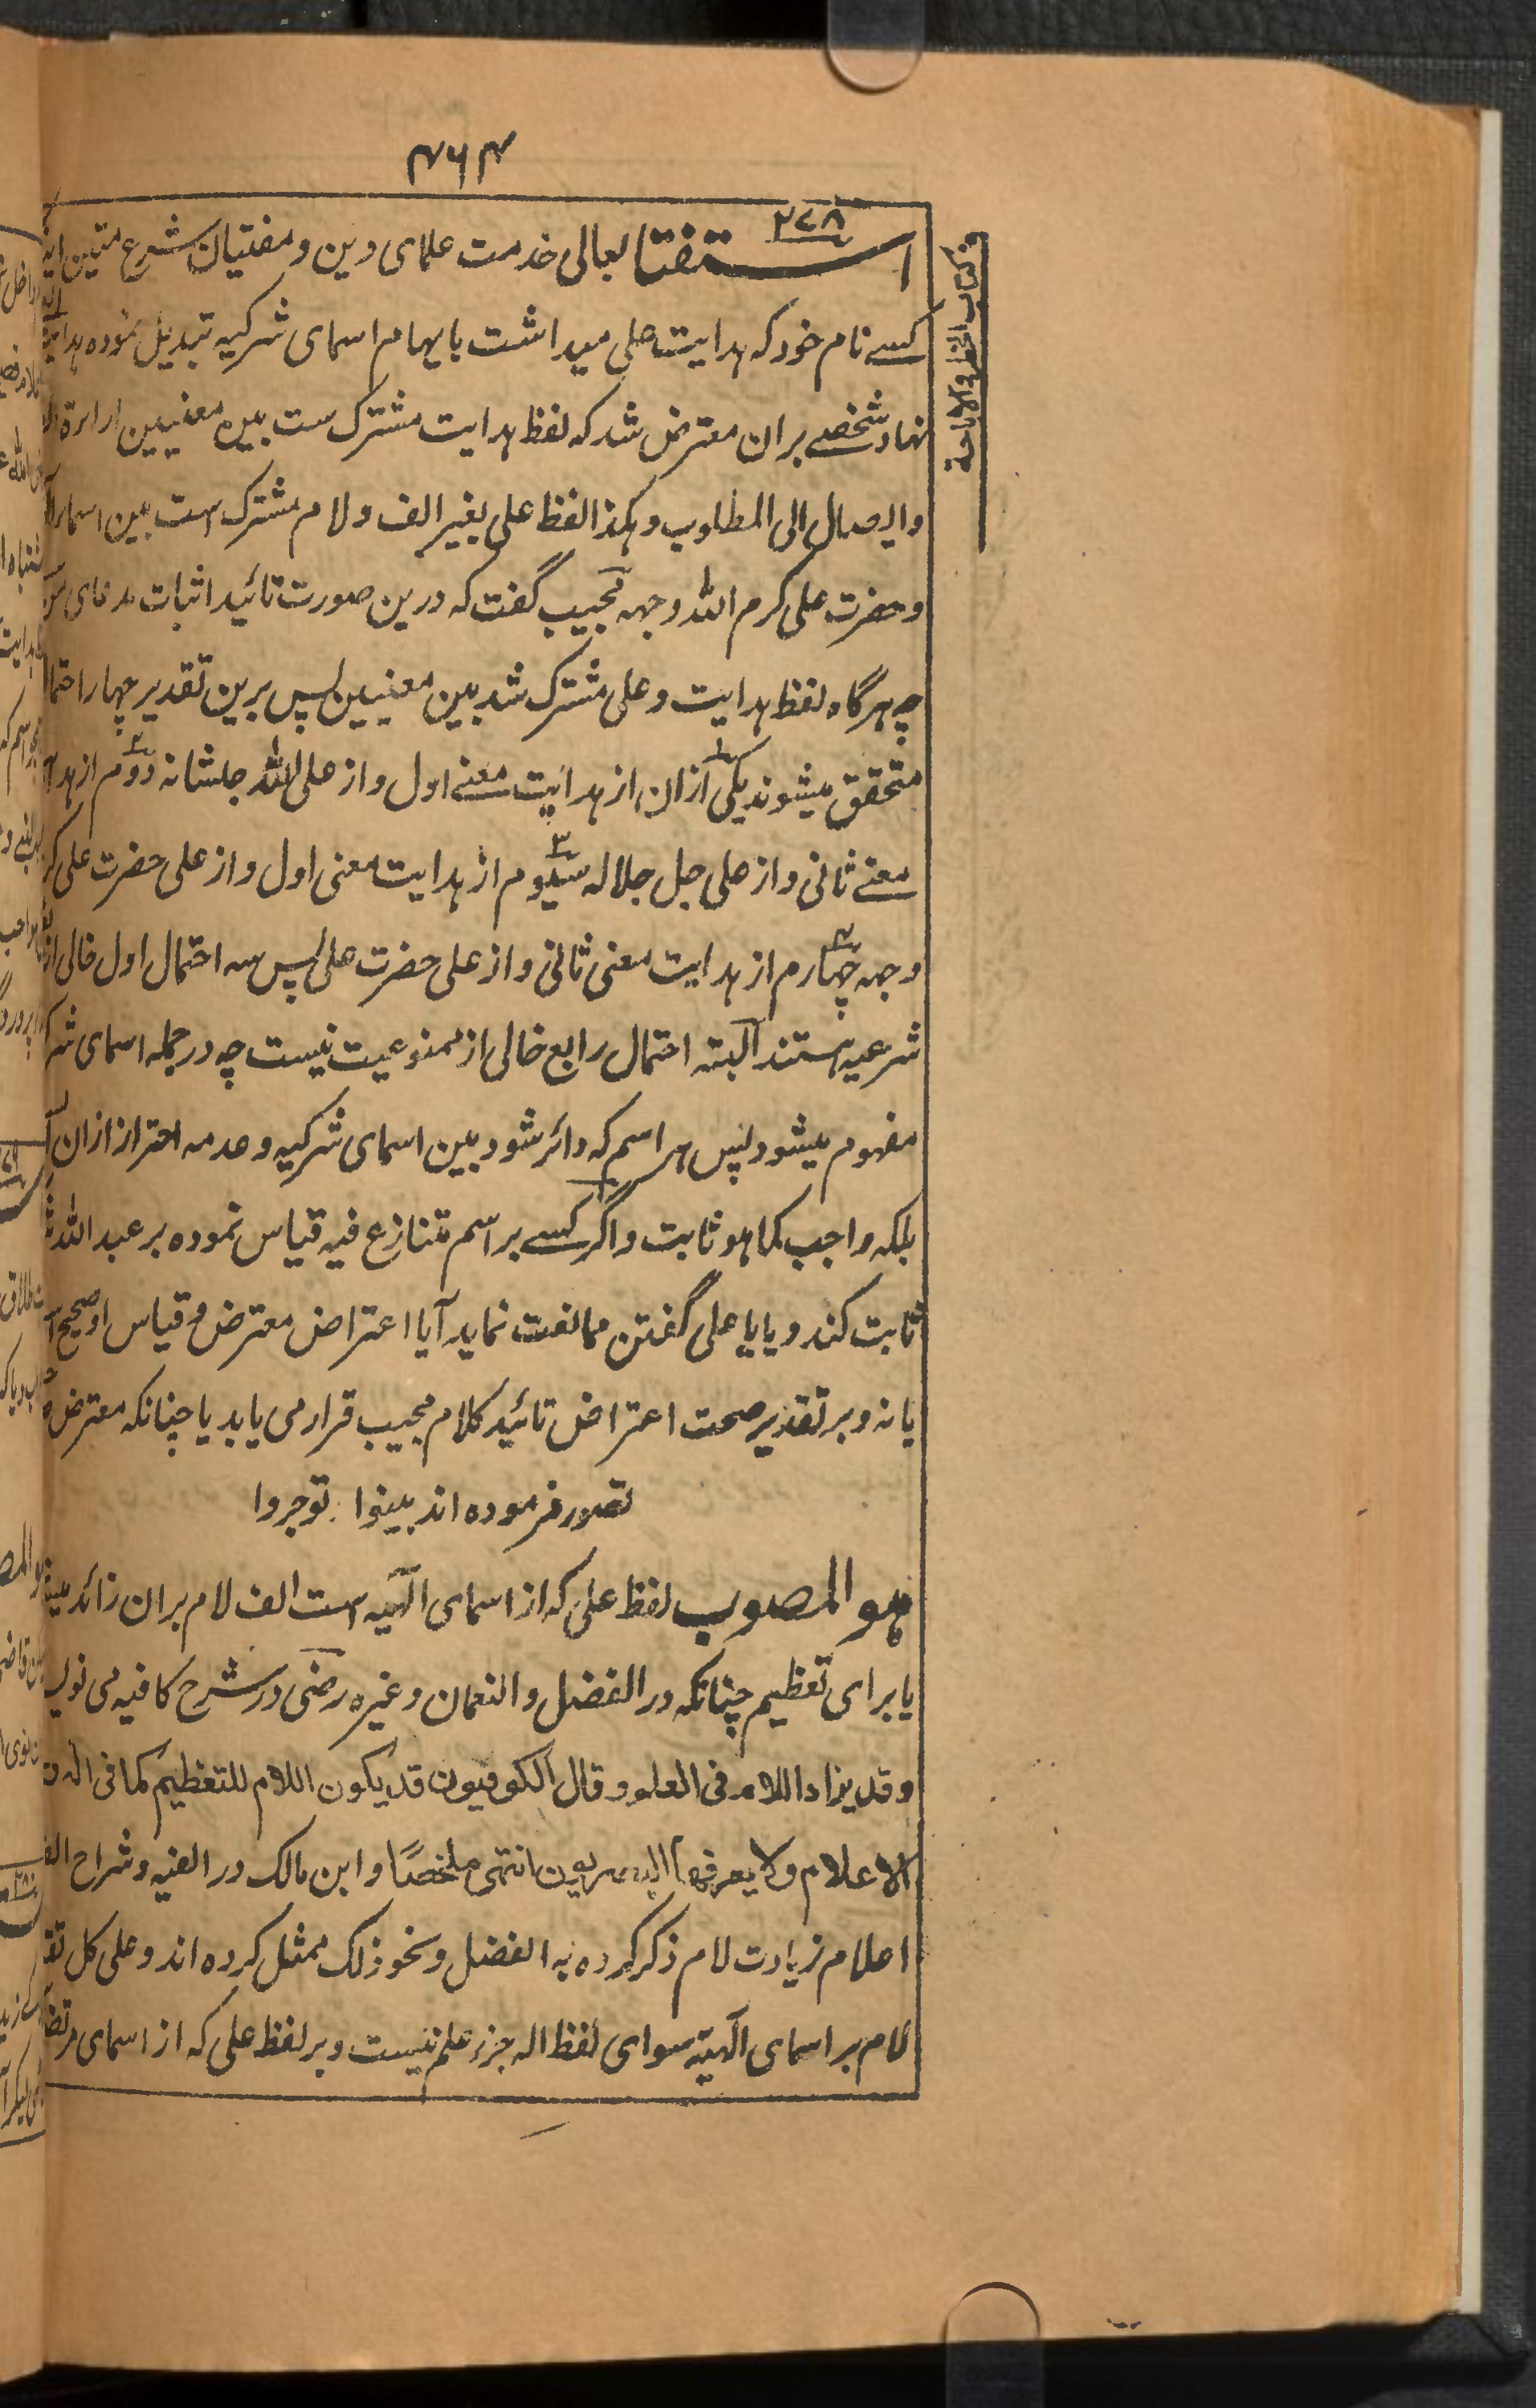 ۴۶۴
۲۷۸
کتاب الحظر والاباحة
استفتا بعالی خدمت علمای دین و مفتیان شرع متین
کسے نام خود کہ ہدایت علی میداشت بایہام اسمای شرکیہ تبدیل نمودہ
نہاد شخصے بران معترض شد کہ لفظ ہدایت مشترک ست بین معنیین اراءة
وایصال الی المطلوب وہکذا لفظ علی بغیر الف ولام مشترک ست بین اسما
وحضرت علی کرم اللہ وجہہ مجیب گفت کہ درین صورت تائید اثبات مدعای
چہ ہرگاہ لفظ ہدایت وعلی مشترک شد بین معنیین پس برین تقدیر چہار
متحقق میشوند یکی ازان از ہدایت معنے اول واز علی اللہ جلشانہ دوم از
معنے ثانی واز علی جل جلالہ سیوم از ہدایت معنی اول واز علی حضرت علی
وجہہ چہارم از ہدایت معنی ثانی واز علی حضرت علی پس سہ احتمال اول خالی از
شرعیہ ہستند البتہ احتمال رابع خالی از ممنوعیت نیست چہ در جملہ اسمای
مفہوم میشود پس ہر اسم کہ دائر شود بین اسمای شرکیہ وعدمہ احتراز ازان
بلکہ واجب کما ہو ثابت واگر کسے بر اسم متنازع فیہ قیاس نمودہ بر عبد اللہ
ثابت کند و یا یا علی گفتن ممانعت نماید آیا اعتراض معترض و قیاس او صحیح
یا نہ و بر تقدیر صحت اعتراض تائید کلام مجیب قرار می یابد یا چنانکہ معترض
تصور فرمودہ اند بینوا توجروا
ہو المصوب لفظ علی کہ از اسمای الٰہیہ است الف لام بران زائد
یا برای تعظیم چنانکہ در الفضل والنعمان وغیرہ رضی در شرح کافیہ می
وقد یزاد اللام فی العلم وقال الکوفیون قد یکون اللام للتعظیم کما فی
الاعلام ولا یعرفہا البصریون انتہی ملخصًا وابن مالک در الفیہ وشراح
اعلام زیادت لام ذکر کردہ بہ الفضل ونحو ذلک ممثل کردہ اند وعلی کل
لام بر اسمای الٰہیہ سوای لفظ الہ جزء علم نیست وبر لفظ علی کہ از اسمای